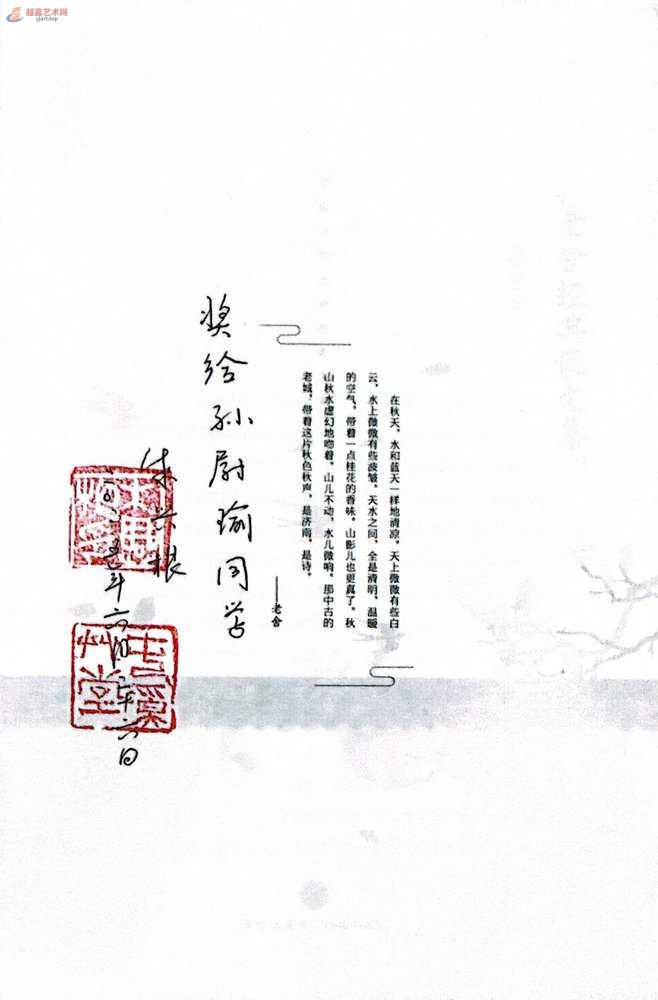 越嘉艺术网
yjart.top
在秋天，水和蓝天一样地清凉。天上微微有些白
云，水上微微有些波皱。天水之间，全是清明，温暖
的空气，带着一点桂花的香味。山影儿也更真了。秋
山秋水虚幻地吻着。山儿不动，水儿微响。那中古的
老城，带着这片秋色秋声，是济南，是诗。
——老舍
奖给孙尉瑜同学
朱兴根
二〇二五年六月二十六日
草堂